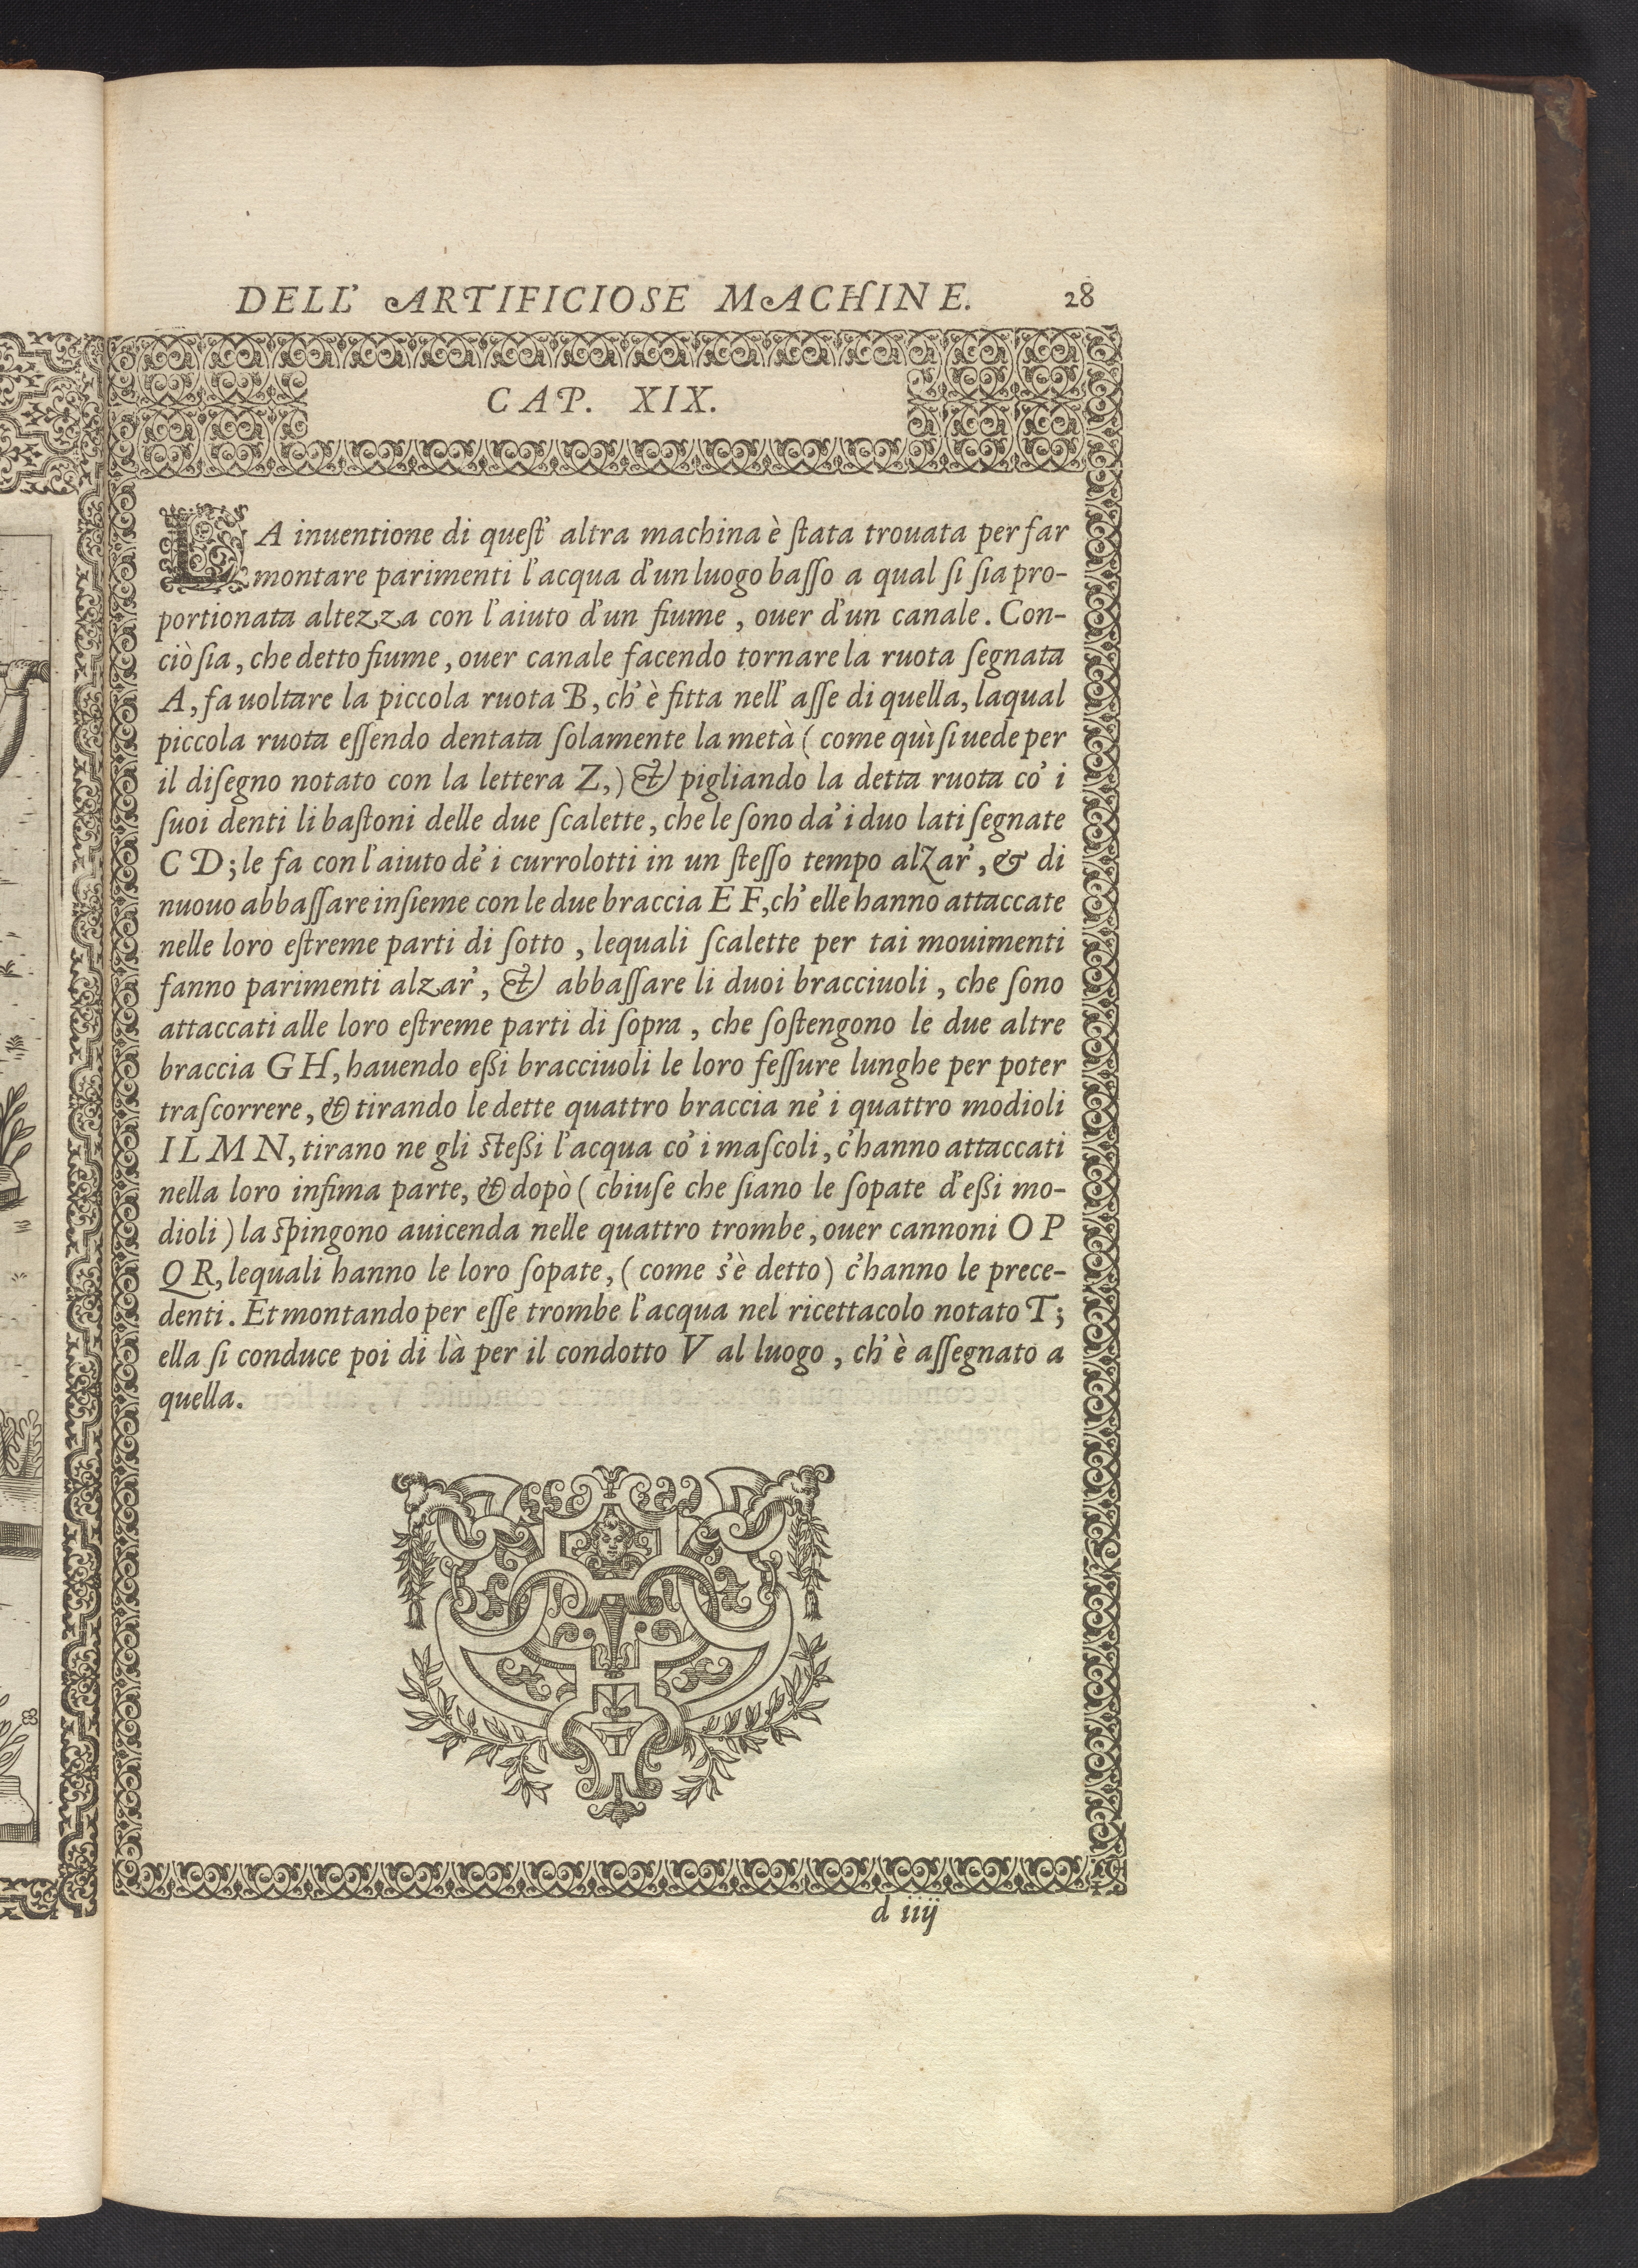 DELL' ARTIFICIOSE MACHINE. 28
CAP. XIX.
LA inuentione di quest' altra machina è stata trouata per far
montare parimenti l'acqua d'un luogo basso a qual si sia pro-
portionata altezza con l'aiuto d'un fiume, ouer d'un canale. Con-
ciò sia, che detto fiume, ouer canale facendo tornare la ruota segnata
A, fa uoltare la piccola ruota B, ch' è fitta nell' asse di quella, laqual
piccola ruota essendo dentata solamente la metà ( come quì si uede per
il disegno notato con la lettera Z,) & pigliando la detta ruota co' i
suoi denti li bastoni delle due scalette, che le sono da' i duo lati segnate
C D; le fa con l'aiuto de' i currolotti in un stesso tempo alzar', & di
nuouo abbassare insieme con le due braccia E F, ch' elle hanno attaccate
nelle loro estreme parti di sotto, lequali scalette per tai mouimenti
fanno parimenti alzar', & abbassare li duoi bracciuoli, che sono
attaccati alle loro estreme parti di sopra, che sostengono le due altre
braccia G H, hauendo eßi bracciuoli le loro fessure lunghe per poter
trascorrere, & tirando le dette quattro braccia ne' i quattro modioli
I L M N, tirano ne gli steßi l'acqua co' i mascoli, c'hanno attaccati
nella loro infima parte, & dopò ( cbiuse che siano le sopate d'eßi mo-
dioli ) la spingono auicenda nelle quattro trombe, ouer cannoni O P
Q R, lequali hanno le loro sopate, ( come s'è detto ) c'hanno le prece-
denti. Et montando per esse trombe l'acqua nel ricettacolo notato T;
ella si conduce poi di là per il condotto V al luogo, ch' è assegnato a
quella.
d iiij